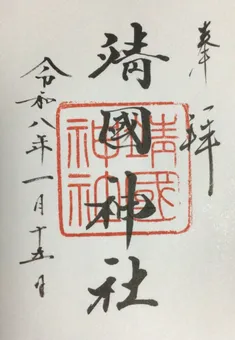 奉拝
靖國神社
靖國
神社
令和八年一月十五日